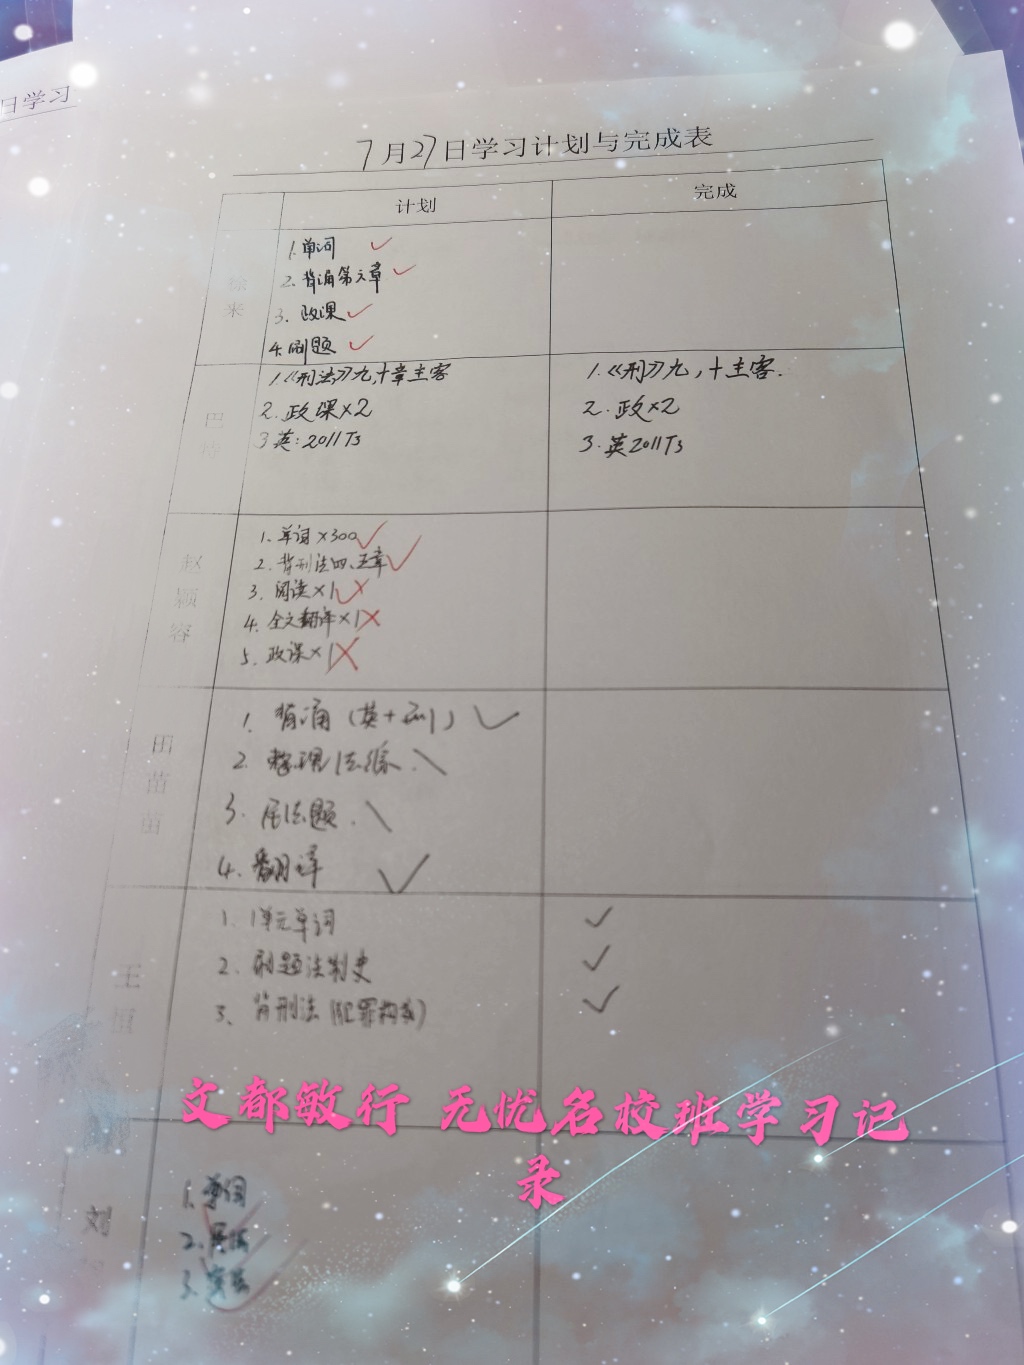 日学习
7月27日学习计划与完成表
计划
完成
来
1.单词
2.背诵第六章
3.政课
4.刷题
巴
1.《刑法》九,十章主客
2.政课×2
3英:2011T3
1.《刑》九,十主客.
2.政×2
3.英2011T3
赵颖容
1.单词×300
2.背刑法四、五章
3.阅读×1
4.全文翻译×1
5.政课×1
田苗苗
1.背诵(英+刑)
2.整理法综.
3.民法题.
4.翻译
王恒
1.1单元单词
2.刷题法制史
3、背刑法(犯罪构成)
文都敏行 无忧名校班学习记
录
刘
1.单词
2.民法
3.